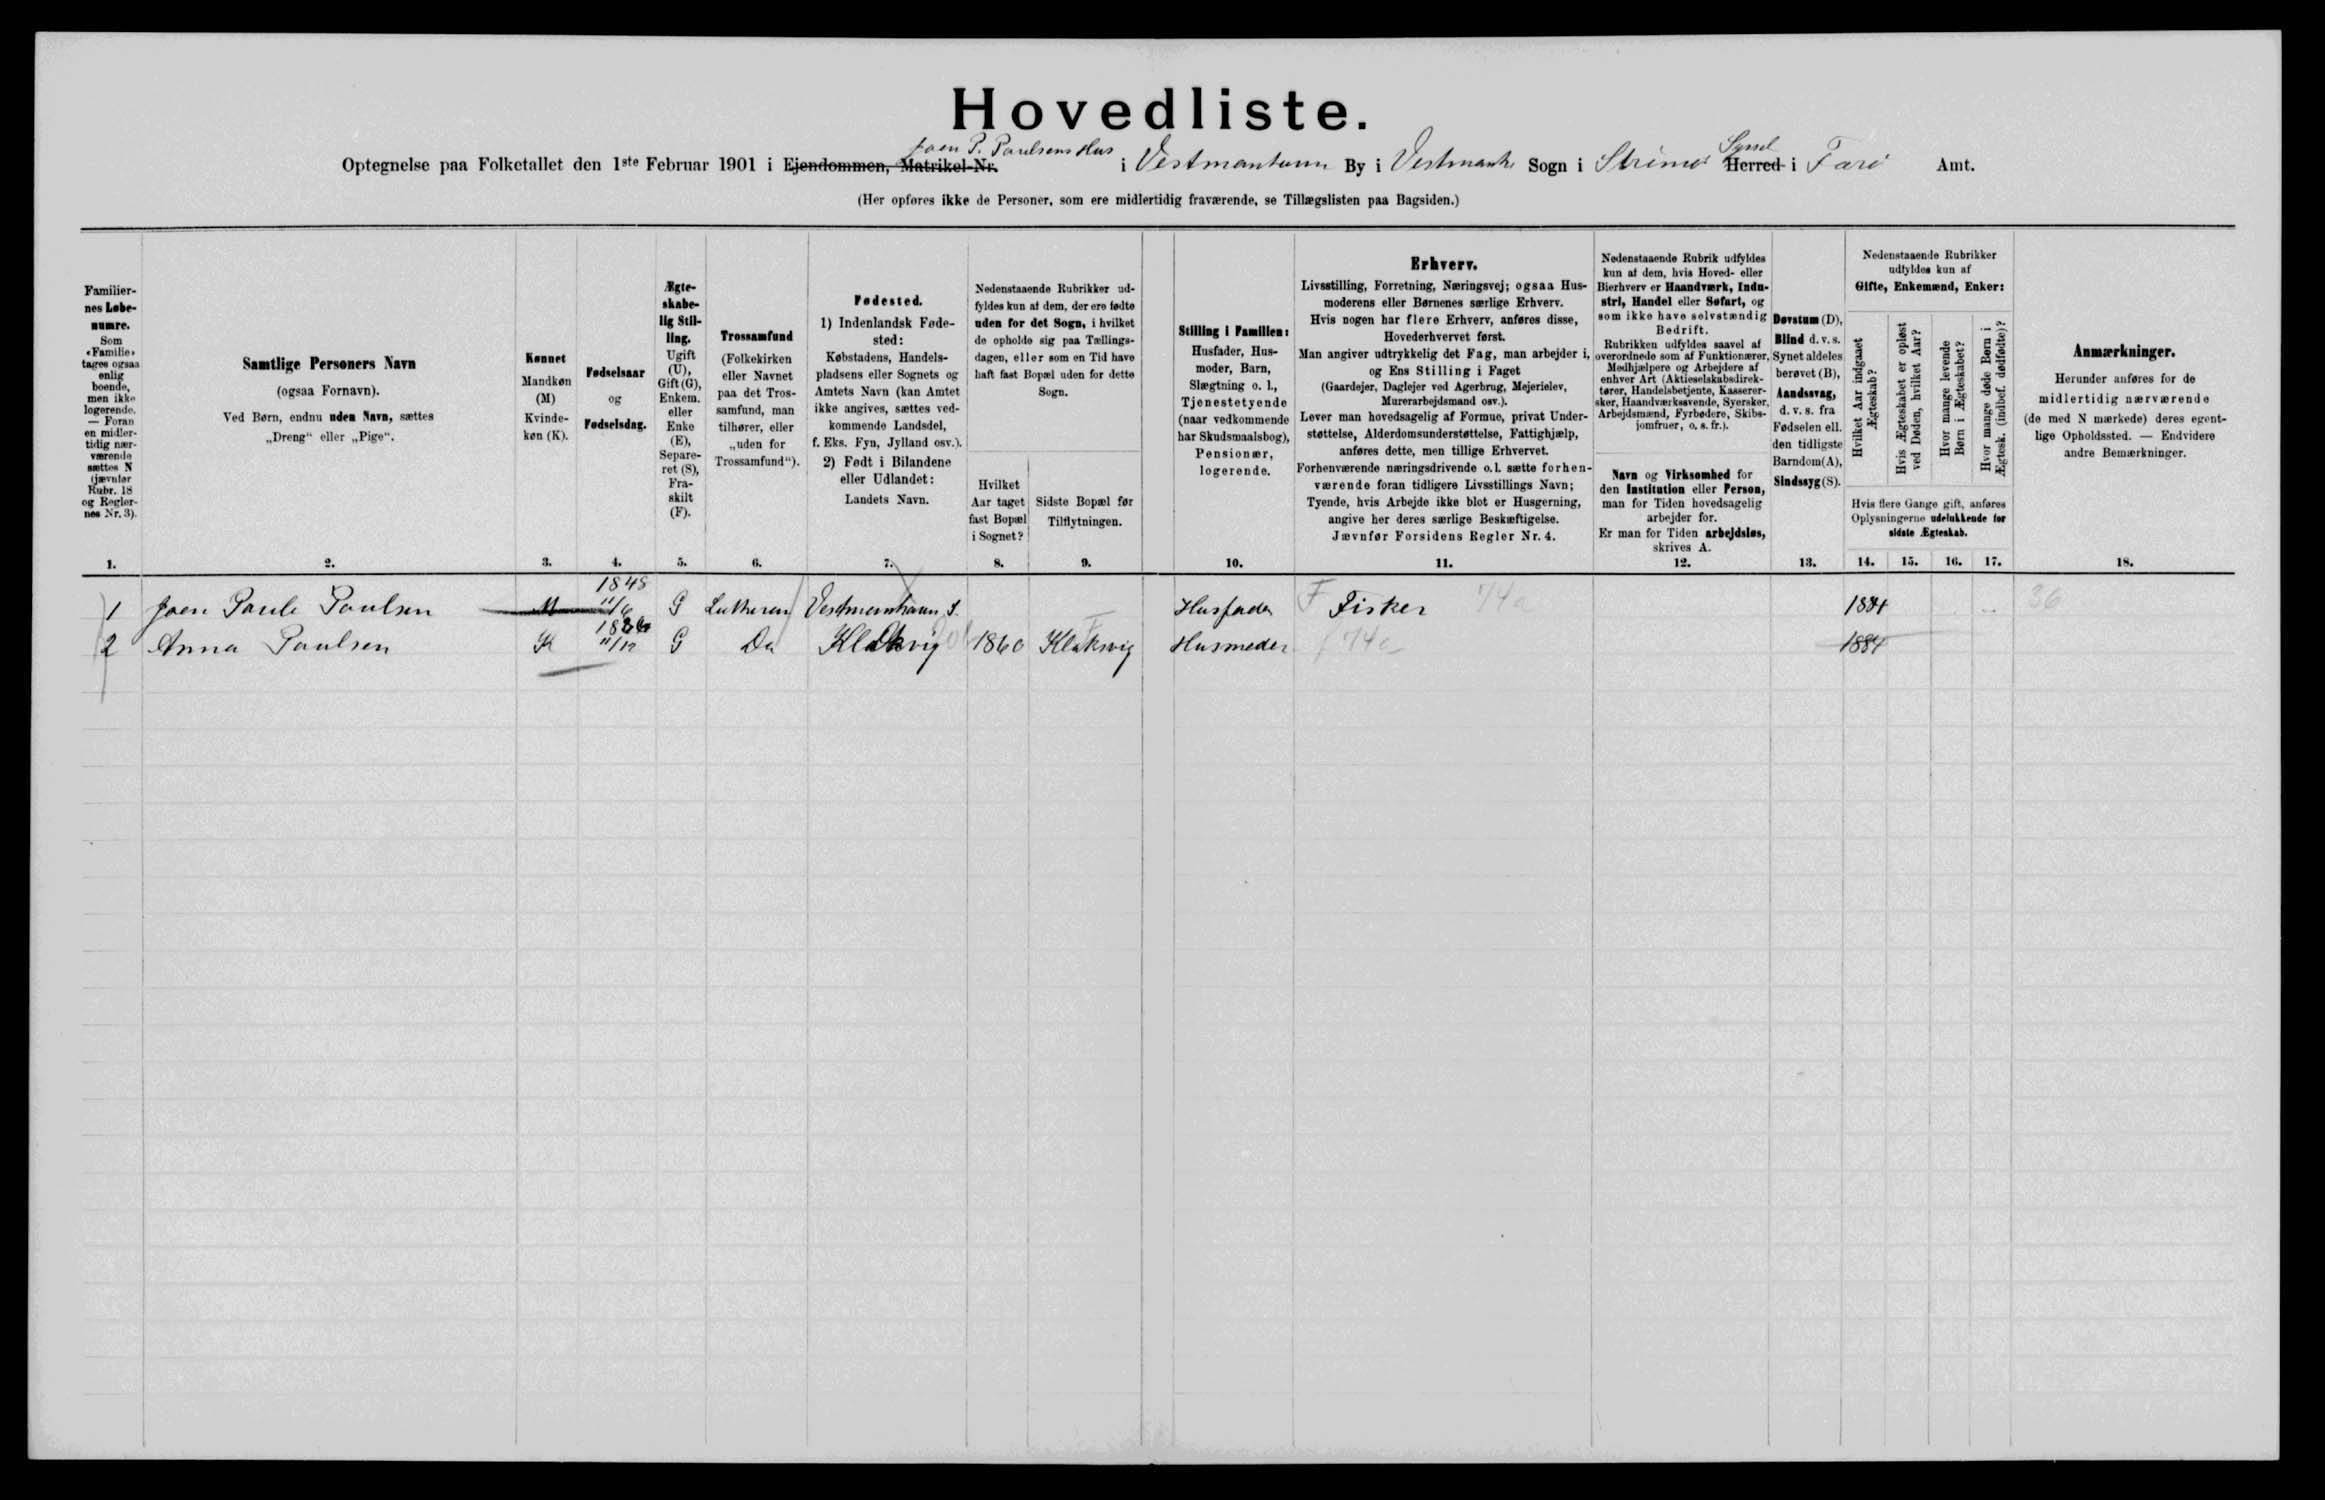 Hovedliste.
Joen P. Poulsens Hus
Syssel
Optegnelse paa Folketallet den 1ste Februar 1901 i Ejendommen, Matrikel-Nr. i Vestmanhavn By i Vestmanh. Sogn i Strömö Herred i Færö Amt.
(Her opføres ikke de Personer, som ere midlertidig fraværende, se Tillægslisten paa Bagsiden.)
Familier-
nes Løbe-
numre.
Som
«Familie»
tages ogsaa
enlig
boende,
men ikke
logerende.
— Foran
en midler-
tidig nær-
værende
sættes N
(jævnfør
Rubr. 18
og Regler-
nes Nr. 3).
1.
Samtlige Personers Navn
(ogsaa Fornavn).
Ved Børn, endnu uden Navn, sættes
„Dreng“ eller „Pige“.
2.
Kønnet
Mandkøn
(M)
Kvinde-
køn (K).
3.
Fødselsaar
og
Fødselsdag.
4.
Ægte-
skabe-
lig Stil-
ling.
Ugift
(U),
Gift (G),
Enkem.
eller
Enke
(E),
Separe-
ret (S),
Fra-
skilt
(F).
5.
Trossamfund
(Folkekirken
eller Navnet
paa det Tros-
samfund, man
tilhører, eller
„uden for
Trossamfund“).
6.
Fødested.
1) Indenlandsk Føde-
sted:
Købstadens, Handels-
pladsens eller Sognets og
Amtets Navn (kan Amtet
ikke angives, sættes ved-
kommende Landsdel,
f. Eks. Fyn, Jylland osv.).
2) Født i Bilandene
eller Udlandet:
Landets Navn.
7.
Nedenstaaende Rubrikker ud-
fyldes kun af dem, der ere fødte
uden for det Sogn, i hvilket
de opholde sig paa Tællings-
dagen, eller som en Tid have
haft fast Bopæl uden for dette
Sogn.
Hvilket
Aar taget
fast Bopæl
i Sognet?
8.
Sidste Bopæl før
Tilflytningen.
9.
Stilling i Familien:
Husfader, Hus-
moder, Barn,
Slægtning o. l.,
Tjenestetyende
(naar vedkommende
har Skudsmaalsbog),
Pensionær,
logerende.
10.
Erhverv.
Livsstilling, Forretning, Næringsvej; ogsaa Hus-
moderens eller Børnenes særlige Erhverv.
Hvis nogen har flere Erhverv, anføres disse,
Hovederhvervet først.
Man angiver udtrykkelig det Fag, man arbejder i,
og Ens Stilling i Faget
(Gaardejer, Daglejer ved Agerbrug, Mejerielev,
Murerarbejdsmand osv.).
Lever man hovedsagelig af Formue, privat Under-
støttelse, Alderdomsunderstøttelse, Fattighjælp,
anføres dette, men tillige Erhvervet.
Forhenværende næringsdrivende o. l. sætte forhen-
værende foran tidligere Livsstillings Navn;
Tyende, hvis Arbejde ikke blot er Husgerning,
angive her deres særlige Beskæftigelse.
Jævnfør Forsidens Regler Nr. 4.
11.
Nedenstaaende Rubrik udfyldes
kun af dem, hvis Hoved- eller
Bierhverv er Haandværk, Indu-
stri, Handel eller Søfart, og
som ikke have selvstændig
Bedrift.
Rubrikken udfyldes saavel af
overordnede som af Funktionærer,
Medhjælpere og Arbejdere af
enhver Art (Aktieselskabsdirek-
tører, Handelsbetjente, Kasserer-
sker, Haandværkssvende, Syersker,
Arbejdsmænd, Fyrbødere, Skibs-
jomfruer, o. s. fr.).
Navn og Virksomhed for
den Institution eller Person,
man for Tiden hovedsagelig
arbejder for.
Er man for Tiden arbejdsløs,
skrives A.
12.
Døvstum (D),
Blind d. v. s.
Synet aldeles
berøvet (B),
Aandssvag,
d. v. s. fra
Fødselen ell.
den tidligste
Barndom (A),
Sindssyg (S).
13.
Nedenstaaende Rubrikker
udfyldes kun af
Gifte, Enkemænd, Enker:
Hvilket Aar indgaaet
Ægteskab?
Hvis Ægteskabet er opløst
ved Døden, hvilket Aar?
Hvor mange levende
Børn i Ægteskabet?
Hvor mange døde Børn i
Ægtesk. (indbef. dødfødte)?
Hvis flere Gange gift, anføres
Oplysningerne udelukkende for
sidste Ægteskab.
14. 15. 16. 17.
Anmærkninger.
Herunder anføres for de
midlertidig nærværende
(de med N mærkede) deres egent-
lige Opholdssted. — Endvidere
andre Bemærkninger.
18.
1848
1 Joen Paule Poulsen M 11/6 G Lutheran Vestmanhavn S. Husfader F Fisker 74a 1884 36
2 Anna Poulsen K 11/12 G Do Klaksvig 1860 Klaksvig Husmoder f 74a 1884